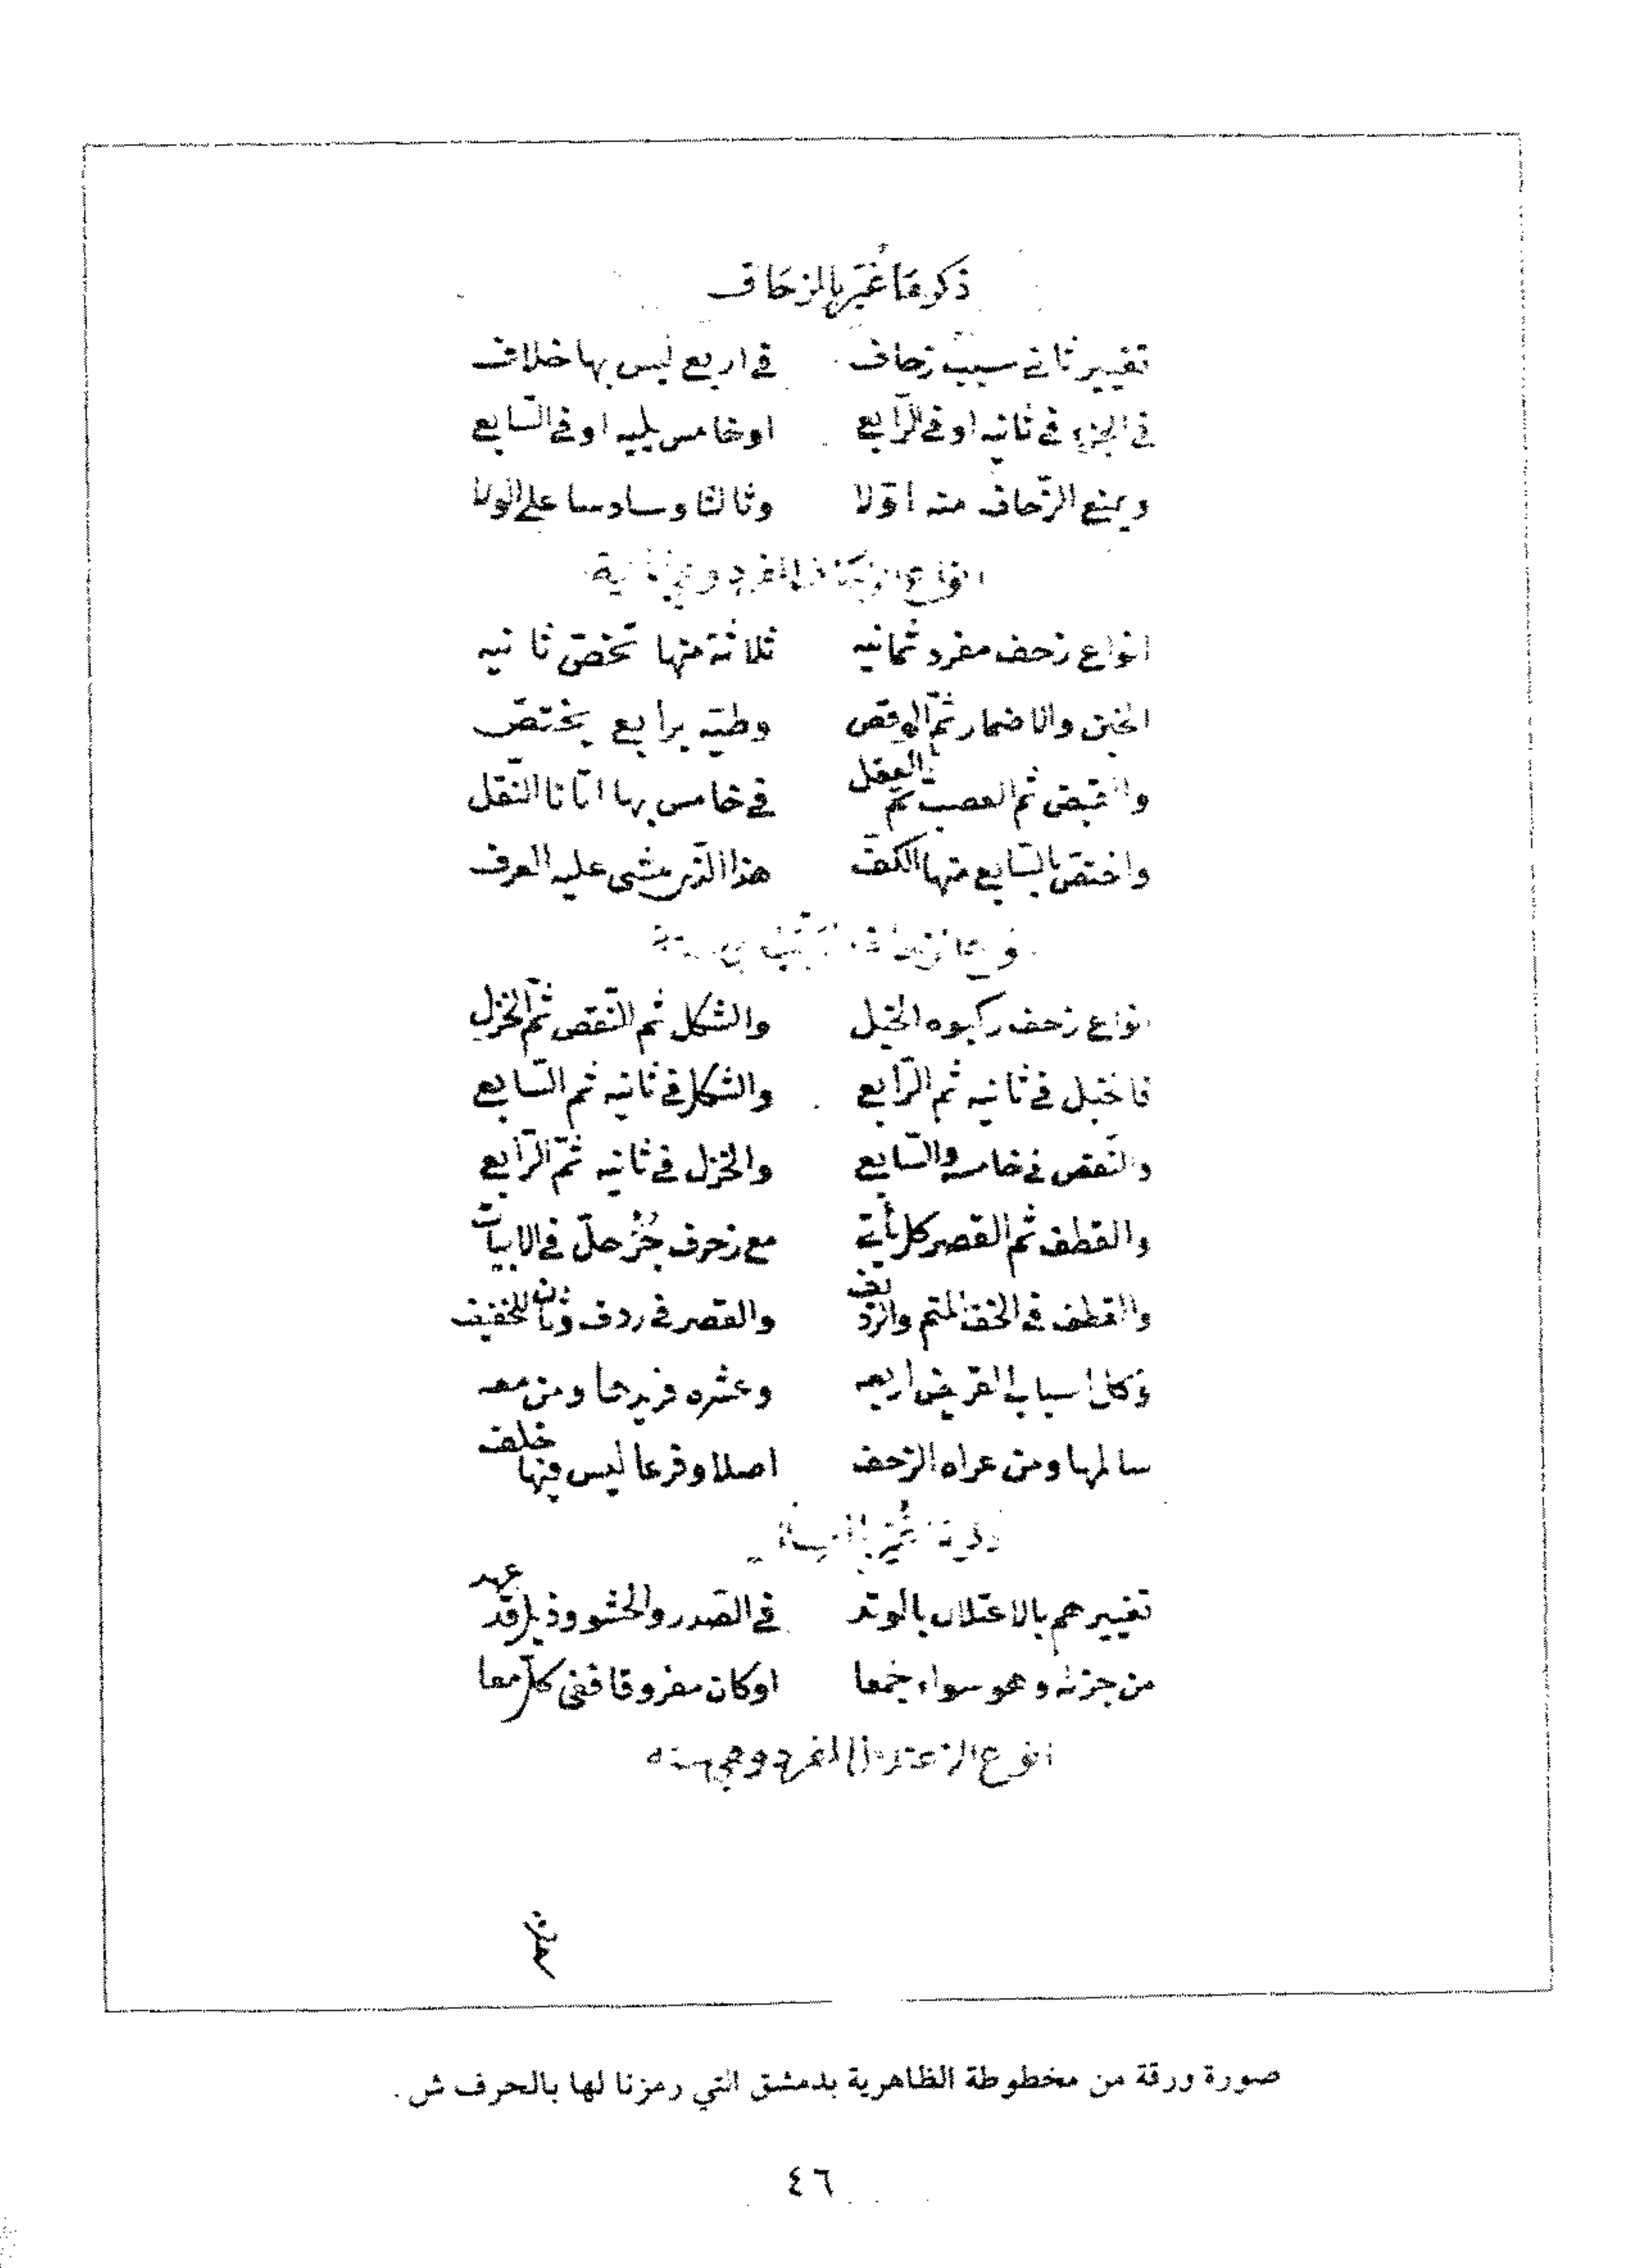 ذكر ما غُيّر بالزحاف
تغيير ثاني سبب زحاف في اربع ليس بها خلاف
في الجزء في ثانيه او في الرّابع او خامس يليه او في السّابع
ويمنع الزّحاف منه اوّلا وثالثا وسادسا على الولا
انواع المفرد وهي ثمانية
انواع زحف مفرد ثمانيه ثلاثة منها تخصّ ثانيه
الخبن والاضمار ثمّ الوقص وطيّه برابع يختصّ
والقبض ثم العصب ثم العقل في خامس بها اتانا النّقل
واختصّ بالسّابع منها الكفّ هذا الذي مشى عليه العرف
انواع زحف ركبوه الخبل والشكل ثم النّقص ثمّ الخزل
فاخبل في ثانيه ثم الرّابع والشكل في ثانيه ثم السّابع
والنّقص في خامسه والسّابع والخزل في ثانيه ثمّ الرّابع
والقطف ثم القصر كل يأتي مع زحرف جُزْ حلّ في الابيات
والقطف في الخف المتم والرّديف والقصر في ردف وثان للخفيف
وكل اسباب القريض اربعه وعشره فزيدها ومن معه
سالمها ومن عراه الزحف اصلا وفرعا ليس فيها خلف
تغييرهم بالاعتلال بالوتد في الصّدر والحشو وذيل قد عهد
من جزئه وهو سواء جمعا اوكان مفروقا ففي كلّ معا
انواع الاعتلال المفرد وهي سته
صورة ورقة من مخطوطة الظاهرية بدمشق التي رمزنا لها بالحرف ش .
٤٦